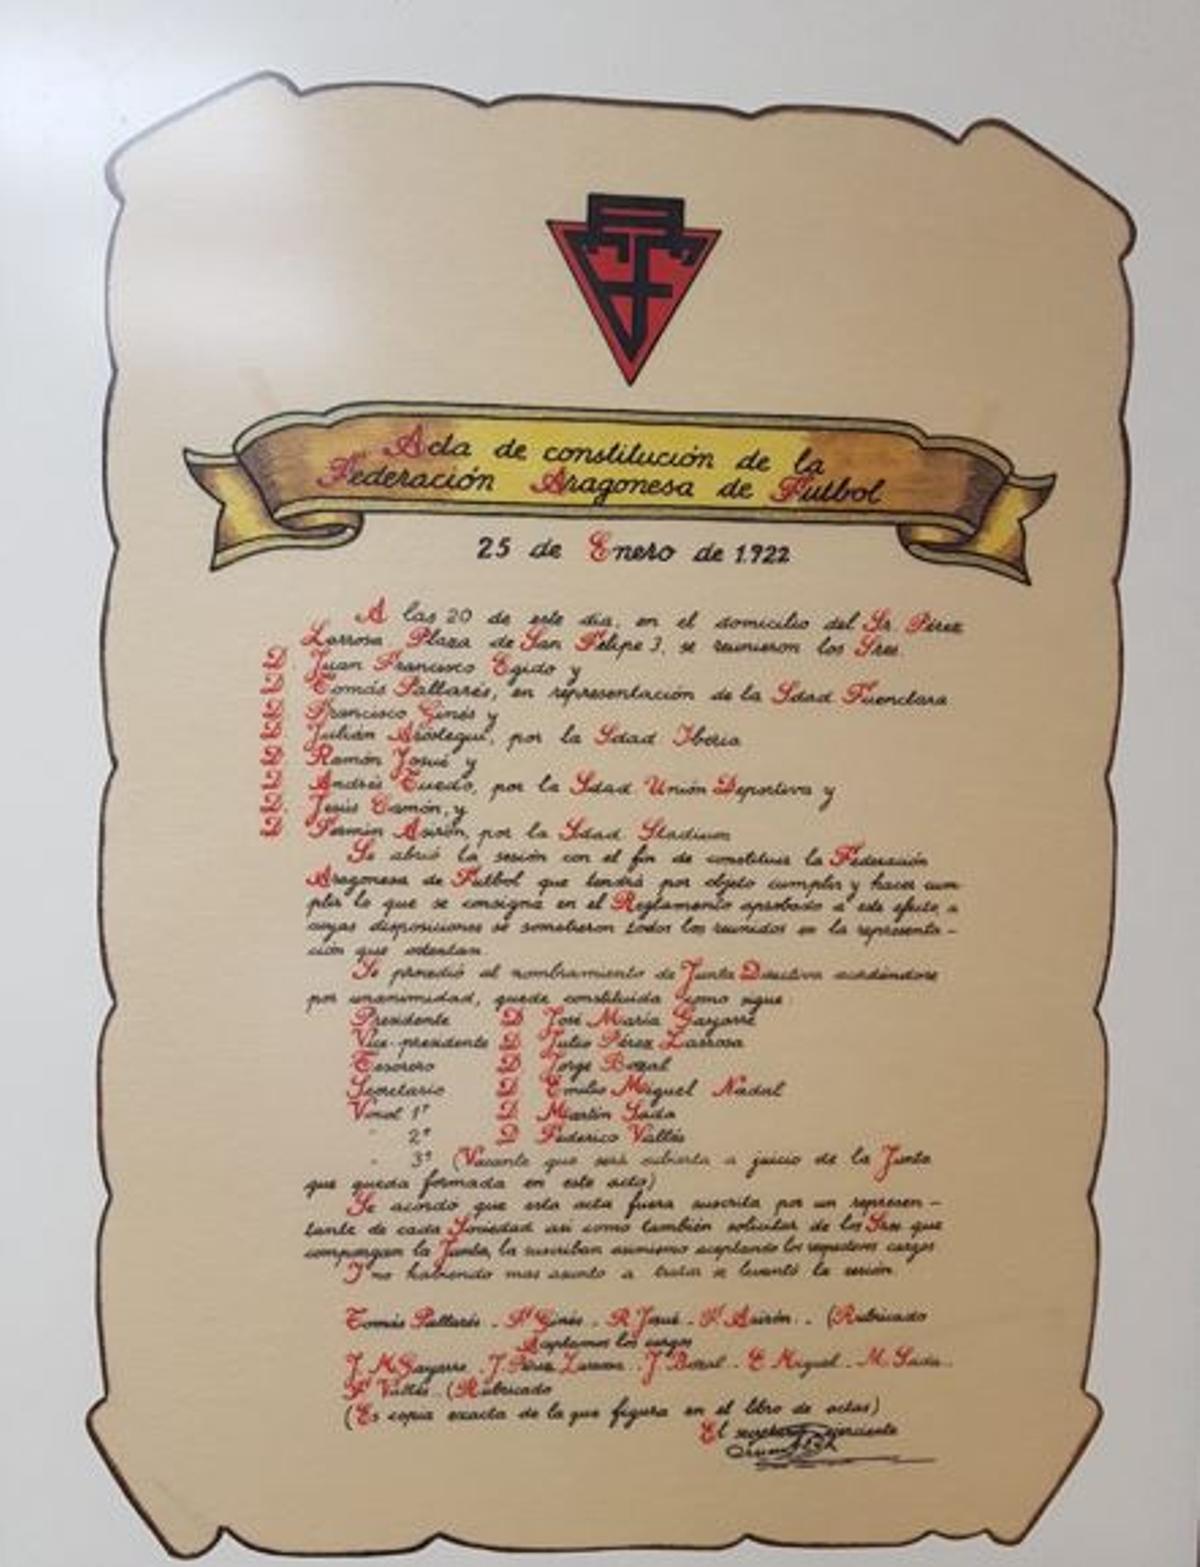 Acta de constitución de la
Federación Aragonesa de Futbol
25 de Enero de 1.922
A las 20 de este dia, en el domicilio del Sr. Pérez
Larrosa Plaza de San Felipe 3, se reunieron los Sres.
D. Juan Francisco Egido y
D. Tomás Pallarés, en representación de la Sdad Fuenclara
D. Francisco Ginés y
D. Julián Aróstegui, por la Sdad Iberia
D. Ramón Josué y
D. Andrés Tuedo, por la Sdad Unión Deportiva y
D. Jesús Camón, y
D. Fermin Asirón, por la Sdad Stadium
Se abrió la sesión con el fin de constituir la Federación
Aragonesa de Futbol que tendrá por objeto cumplir y hacer cum
plir lo que se consigna en el Reglamento aprobado a este efecto, a
cuyas disposiciones se sometieron todos los reunidos en la representa -
ción que ostentan.
Se procedió al nombramiento de Junta Directiva acordándose
por unanimidad, quede constituida como sigue:
Presidente D. José María Gayarre
Vice-presidente D. Julio Pérez Larrosa
Tesorero D. Jorge Bozal
Secretario D. Emilio Miguel Nadal
Vocal 1º D. Martín Sada
" 2º D. Federico Vallés
" 3º (Vacante que será cubierta a juicio de la Junta
que queda formada en este acto)
Se acordó que esta acta fuera suscrita por un represen -
tante de cada Sociedad asi como también solicitar de los Sres que
compongan la Junta, la suscriban asimismo aceptando los respectivos cargos
Y no habiendo mas asunto a tratar se levantó la sesión.
Tomás Pallarés - Fº Ginés - R. Josué - Fº Asirón - (Rubricado
Aceptamos los cargos
J. M Gayarre - J. Pérez Larrosa - Jº Bozal - E. Miguel - M. Sada -
Fº Vallés - (Rubricado
(Es copia exacta de la que figura en el libro de actas)
El secretario ejerciente